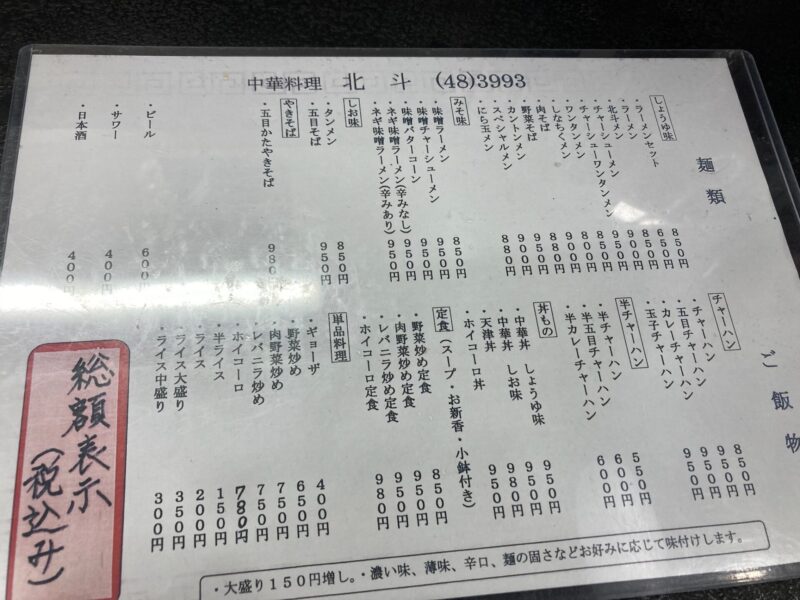 中華料理 北斗 (48)3993
麺類
しょうゆ味
・ラーメンセット 850円
・ラーメン 650円
・北斗メン 850円
・チャーシューメン
・チャーシューワンタンメン
・ワンタンメン
・しなちくメン
・肉そば
・野菜そば
・カントンメン 950円
・スペシャルメン 900円
・にら玉メン 880円
みそ味
・味噌ラーメン 850円
・味噌チャーシューメン 950円
・味噌バターコーン 950円
・ネギ味噌ラーメン(辛みなし) 950円
・ネギ味噌ラーメン(辛みあり) 950円
しお味
・タンメン 850円
・五目そば 950円
やきそば
・五目かたやきそば 980円
・ビール 600
・サワー 400円
・日本酒 400円
ご飯物
チャーハン
・チャーハン 850円
・五目チャーハン 950円
・カレーチャーハン 950円
・玉子チャーハン 950円
半チャーハン
・半チャーハン 550円
・半五目チャーハン 600円
・半カレーチャーハン 600円
丼もの
・中華丼 しょうゆ味 950円
・中華丼 しお味 980円
・天津丼 950円
・ホイコーロ丼
定食(スープ・お新香・小鉢付き)
・野菜炒め定食 850円
・肉野菜炒め定食 950円
・レバニラ炒め定食 950円
・ホイコーロ定食 980円
単品料理
・ギョーザ 400円
・野菜炒め 650円
・肉野菜炒め 750円
・レバニラ炒め 750円
・ホイコーロ 780円
・半ライス 150円
・ライス 200円
・ライス大盛り 350円
・ライス中盛り 300円
総額表示
(税込み)
・大盛り150円増し。・濃い味、薄味、辛口、麺の固さなどお好みに応じて味付けします。